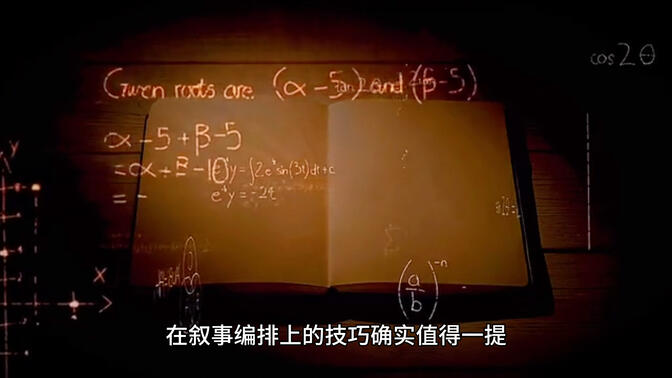 cos2θ
Given roots are (α-5) and (β-5)
α-5+β-5
=α+β-10
y=∫2e^t sin(3t)dt+c
= -
e^t y=-2t
y
x
(a/b)^-n
在叙事编排上的技巧确实值得一提